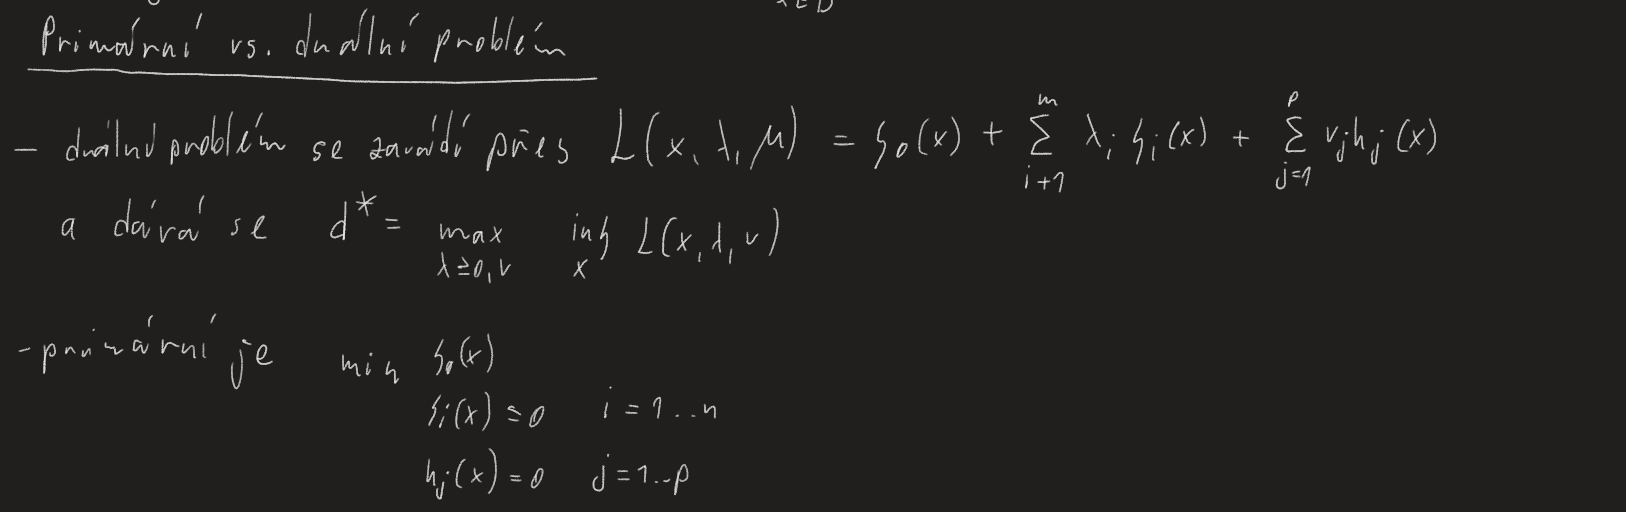 Primární vs. duální problém
- duální problém se zavádí přes L(x, λ, μ) = f₀(x) + Σ_{i+1}^{m} λᵢ fᵢ(x) + Σ_{j=1}^{p} νⱼhⱼ(x)
a dává se d* = max_{λ≥0, ν} inf_x L(x, λ, ν)
- primární je min f₀(x)
fᵢ(x) ≤ 0 i = 1..n
hⱼ(x) = 0 j = 1..p